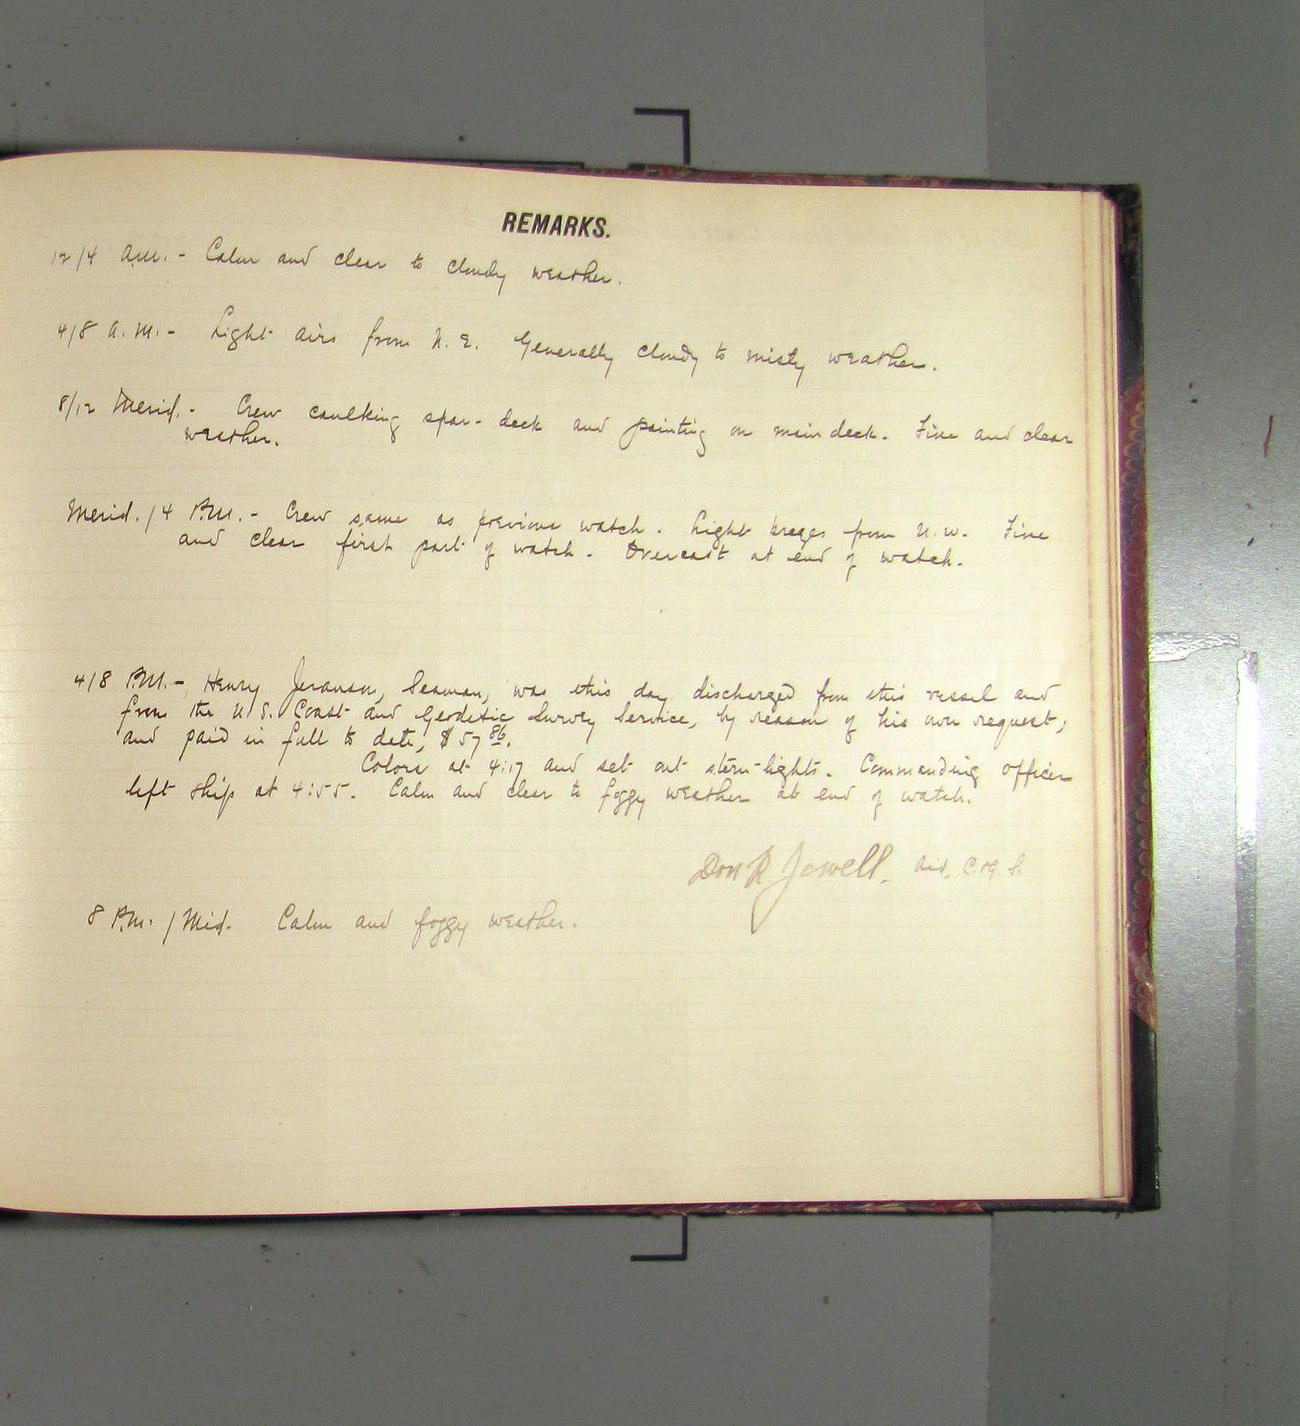 REMARKS.
12/4 A.M. - Calm and clear to cloudy weather.
4/8 A.M. - Light airs from N.E. Generally cloudy to misty weather.
8/12 Merid. - Crew caulking spar-deck and painting on main deck. Fine and clear
weather.
Merid./4 P.M. - Crew same as previous watch. Light brezes from N.W. Fine
and clear first part of watch. Overcast at end of watch.
4/8 P.M. - Henry Seaman, was this day discharged from this vessel and
from the U.S. Coast and Geodetic Survey Service, by reason of his own request,
and paid in full to date, $57 86.
Colors at 4:17 and set out stern-lights. Commanding officer
left ship at 4:55. Calm and clear to foggy weather at end of watch.
Don R Jewell. Aid, C. & G. S.
8 P.M. / Mid. Calm and foggy weather.